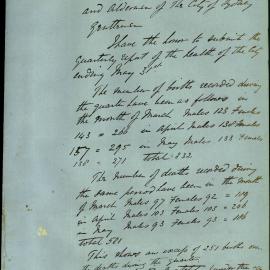 and Aldermen of the City of Sydney
Gentlemen
I have the honor to submit the
Quarterly report of the health of the City
ending May 31st
The number of births recorded during
the quarter have been as follows in
the month of March Males 123 Females
143 = 266 in April Males 138 Females
157 = 295 in May Males 133 Females
138 = 271 total 832
The number of deaths recorded during
the same period have been in the month
of March Males 97 Females 92 = 189
in April Males 103 Females 103 = 206
in May Males 93 Females 93 = 186
total 581
This shows an excess of 251 births over
the deaths during the quarter